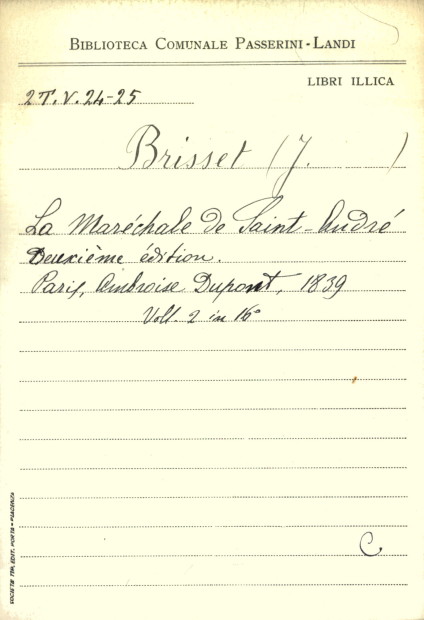 BIBLIOTECA COMUNALE PASSERINI-LANDI
LIBRI ILLICA
2T.V.24-25
Brisset (J. )
La Maréchale de Saint-André
Deuxième édition.
Paris, Ambroise Dupont, 1839
Voll. 2 in 16°
C
SOCIETÀ TIP. EDIT. PORTA - PIACENZA